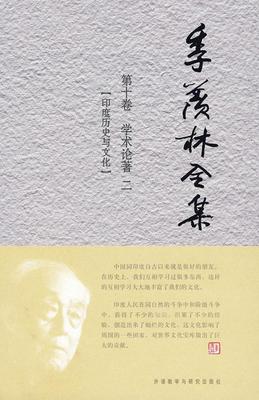 季羡林全集
第十卷 学术论著 二
【印度历史与文化】
中国同印度自古以来就是很好的朋友。
在历史上，我们互相学习过很多东西，这样
的互相学习大大地丰富了我们的文化。
印度人民在同自然的斗争中和阶级斗争
中，获得了不少的知识，积累了不少的经
验，创造出来了灿烂的文化。这文化影响了
周围的一些国家，对世界文化宝库做出了巨
大的贡献。
外语教学与研究出版社